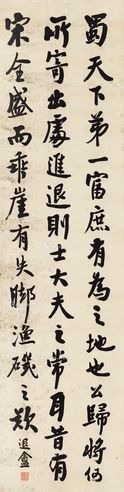 蜀天下第一富庶有為之地也公歸將何
所寄出處進退則士大夫之常耳昔有
宋全盛而乖崖有失腳漁磯之歎
退盦